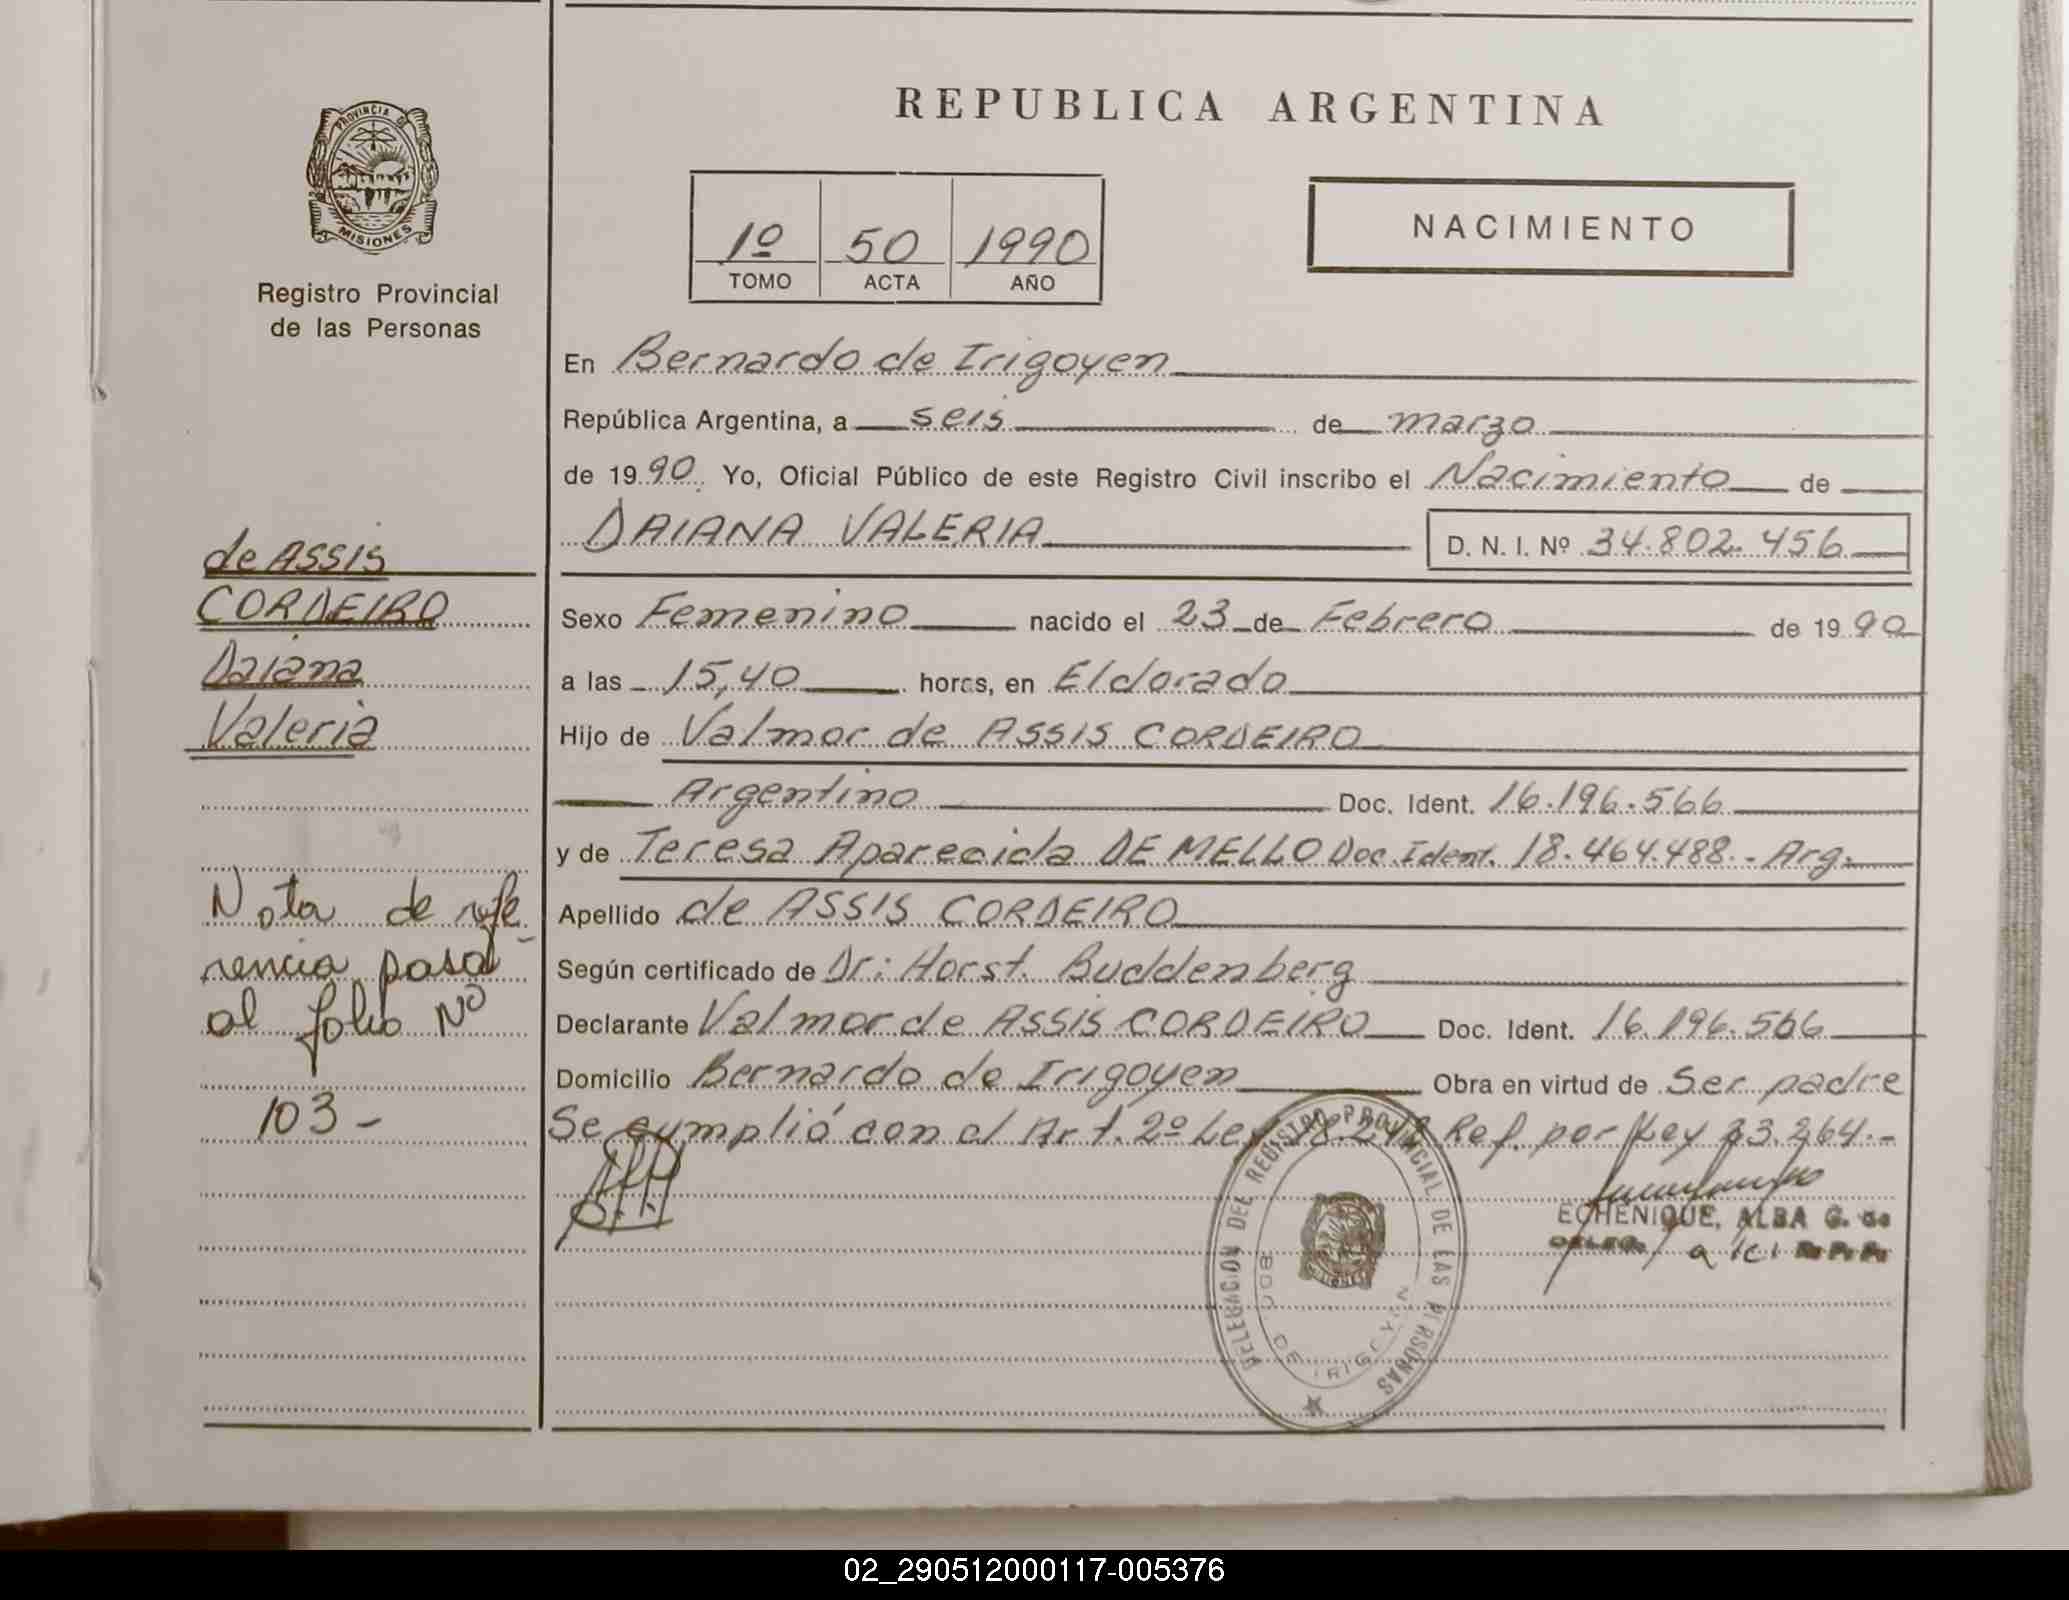 REPUBLICA ARGENTINA
PROVINCIA DE
MISIONES
Registro Provincial
de las Personas
1º 50 1990
TOMO ACTA AÑO
NACIMIENTO
En Bernardo de Irigoyen
República Argentina, a seis de marzo
de 1990. Yo, Oficial Público de este Registro Civil inscribo el Nacimiento de
DAIANA VALERIA D. N. I. Nº 34.802.456
Sexo Femenino nacido el 23 de Febrero de 1990
a las 15,40 horas, en Eldorado
Hijo de Valmor de ASSIS CORDEIRO
Argentino Doc. Ident. 16.196.566
y de Teresa Aparecida DE MELLO Doc. Ident. 18.464.488.- Arg.
Apellido de ASSIS CORDEIRO
Según certificado de Dr: Horst. Buddenberg
Declarante Valmor de ASSIS CORDEIRO Doc. Ident. 16.196.566
Domicilio Bernardo de Irigoyen Obra en virtud de Ser padre
Se cumplió con el Art. 2º Ley 18.248 Ref. por Ley 23.264.-
de ASSIS
CORDEIRO
Daiana
Valeria
Nota de refe
rencia pasa
al folio Nº
103-
DELEGACION DEL REGISTRO PROVINCIAL DE LAS PERSONAS
BDO. DE IRIGOYEN
ECHENIQUE, ALBA G. de
02_290512000117-005376